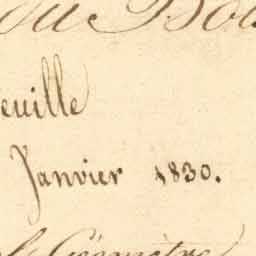 du
euille
Janvier 1830.
Géomètre